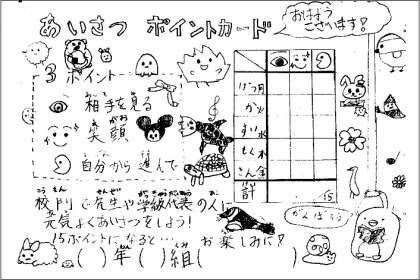 あいさつ ポイントカード
おはよう
ございます!
3ポイント
相手を見る
笑顔
自分から進んで
げつ月
か火
すい水
もく木
きん金
計
15
校門で先生や学級代表の人に
元気よくあいさつをしよう!
15ポイントになると… お楽しみに?
がんばろう
( )年( )組( )